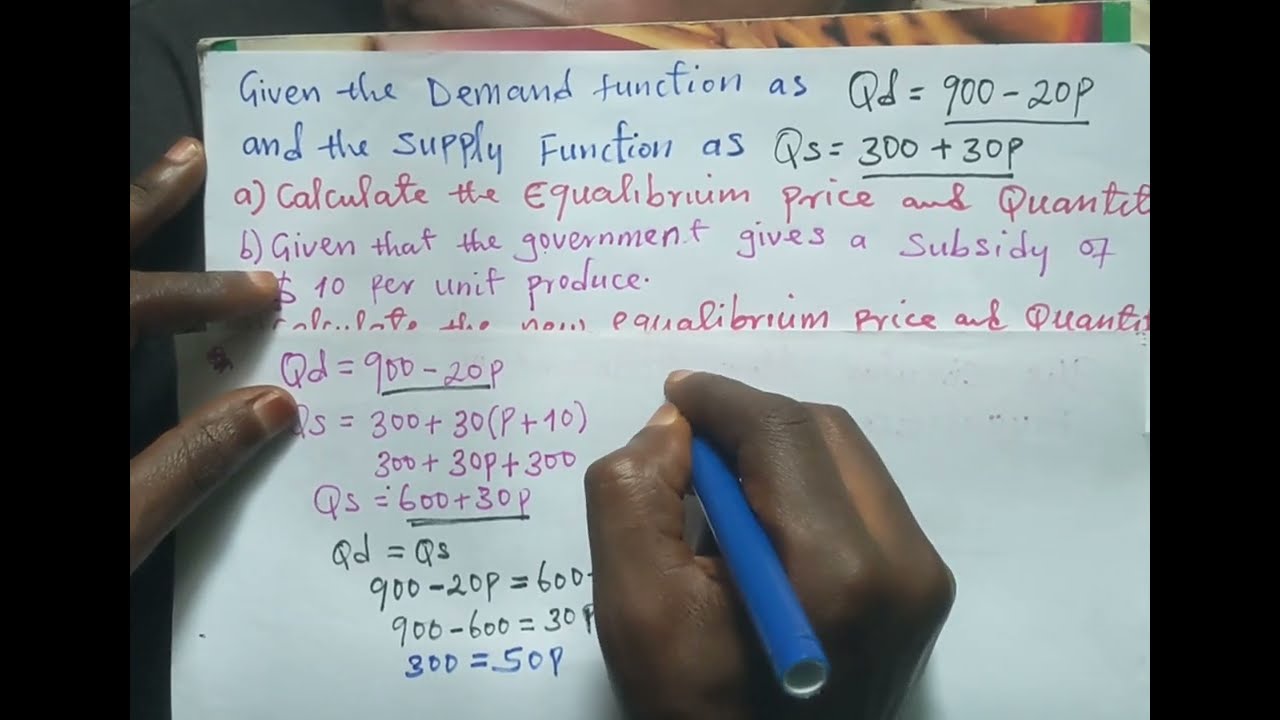 Given the Demand function as Qd = 900 - 20p
and the Supply Function as Qs = 300 + 30p
a) Calculate the Equalibrium price and Quantit
b) Given that the government gives a Subsidy of
$ 10 per unit produce.
Calculate the new equalibrium price and Quantit
Qd = 900 - 20p
Qs = 300 + 30(P + 10)
300 + 30p + 300
Qs = 600 + 30p
Qd = Qs
900 - 20p = 600
900 - 600 = 30p
300 = 50p